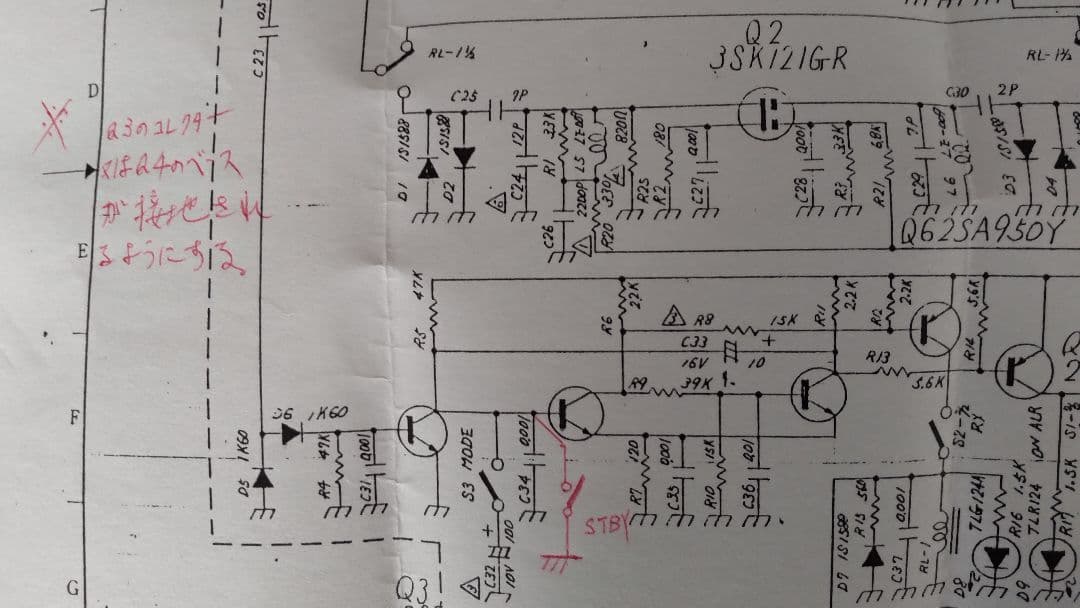 C23
RL-1½
Q2
3SK121GR
RL-1½
D
C25
7P
C30
2P
※
Q3のコレクター
又はQ4のベース
が接地され
るようにする
1S1588
D1
1S1588
D2
12P
C24
33K
R1
2200P
C26
L5
330
R20
820Ω
R25
180
R2
0.001
C27
0.001
C28
33K
R3
68K
R21
7P
C29
L6
1S1588
D3
D4
Q62SA950Y
E
47K
R5
22K
R6
R8
15K
C33
16V
10
R11
2.2K
R12
2.2K
5.6K
R14
R13
5.6K
R9
39K
F
D6
1K60
D5
1K60
47K
R4
0.001
C31
S3 MODE
0.001
C34
120
R7
0.001
C35
15K
R10
0.01
C36
S2-½
RX
ON AIR
STBY
C32
10V
100
D7
1S1588
560
R15
0.001
C37
RL-1
TLG124A
D8
1.5K
R16
TLR124
D9
1.5K
R17
G
Q3